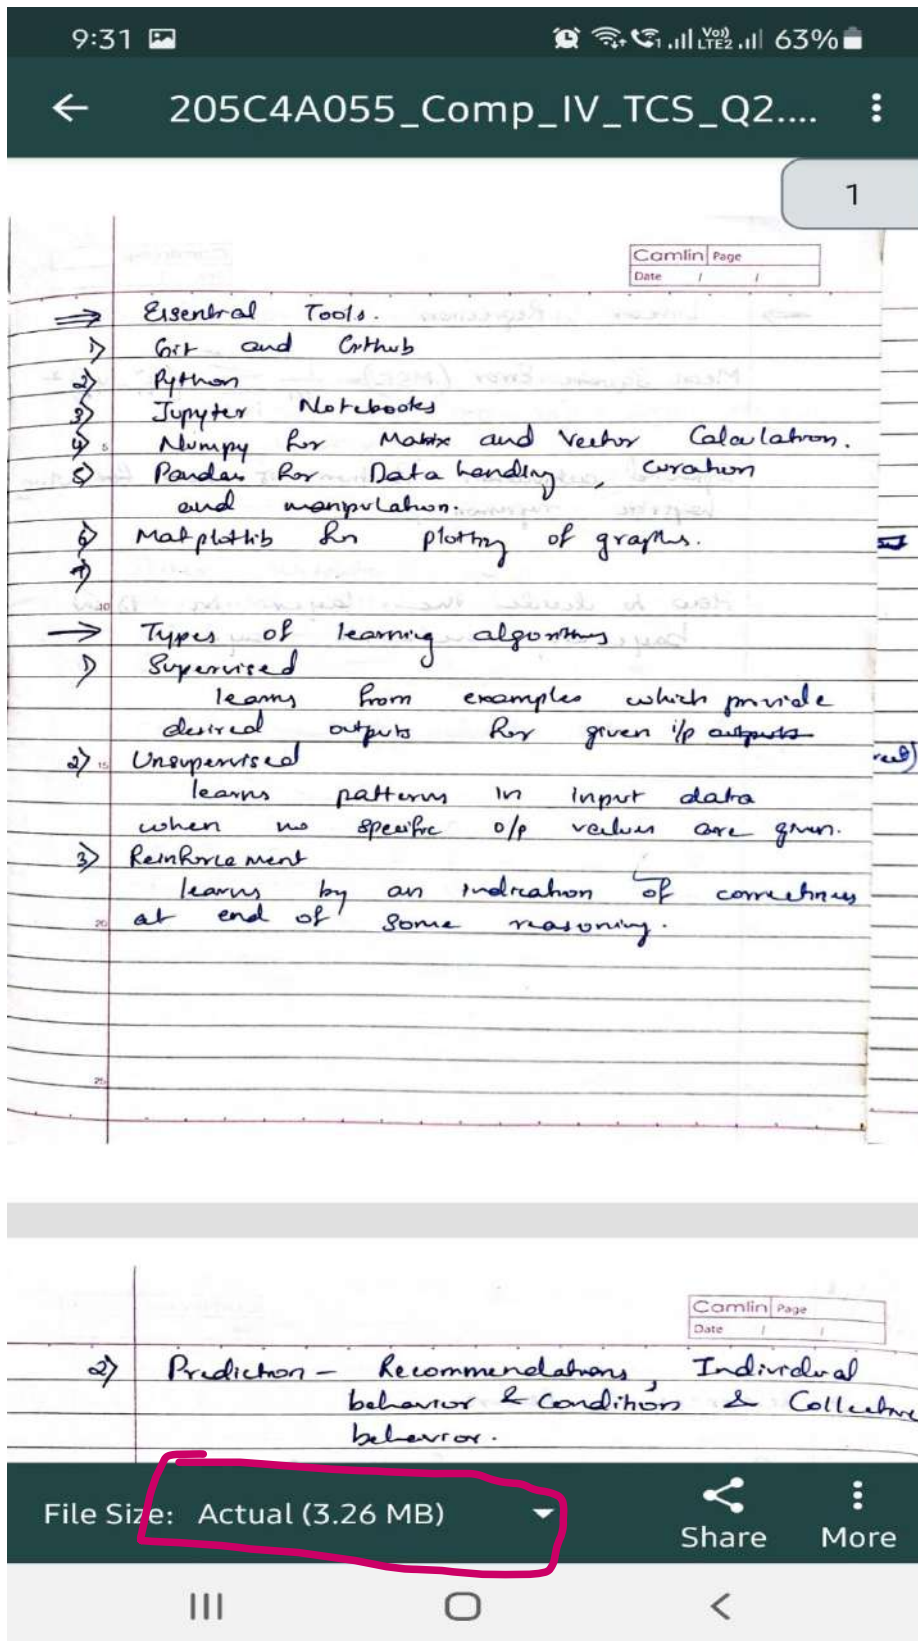 9:31 63%
205C4A055_Comp_IV_TCS_Q2....
1
Camlin Page
Date / /
Essential Tools.
1) Git and Github
2) Python
3) Jupyter Notebooks
4) Numpy for Matrix and Vector Calculation.
5
5) Pandas for Data handling, curation
and manipulation.
6) Matplotlib for plotting of graphs.
7)
10
Types of learning algorithms
1) Supervised
learns from examples which provide
desired outputs for given i/p outputs
2) Unsupervised
15
learns patterns in input data
when no specific o/p values are given.
3) Reinforcement
learns by an indication of correctness
20
at end of some reasoning.
25
Camlin Page
Date / /
2) Prediction - Recommendations, Individual
behavior & Condition & Collective
behavior.
File Size: Actual (3.26 MB)
Share More